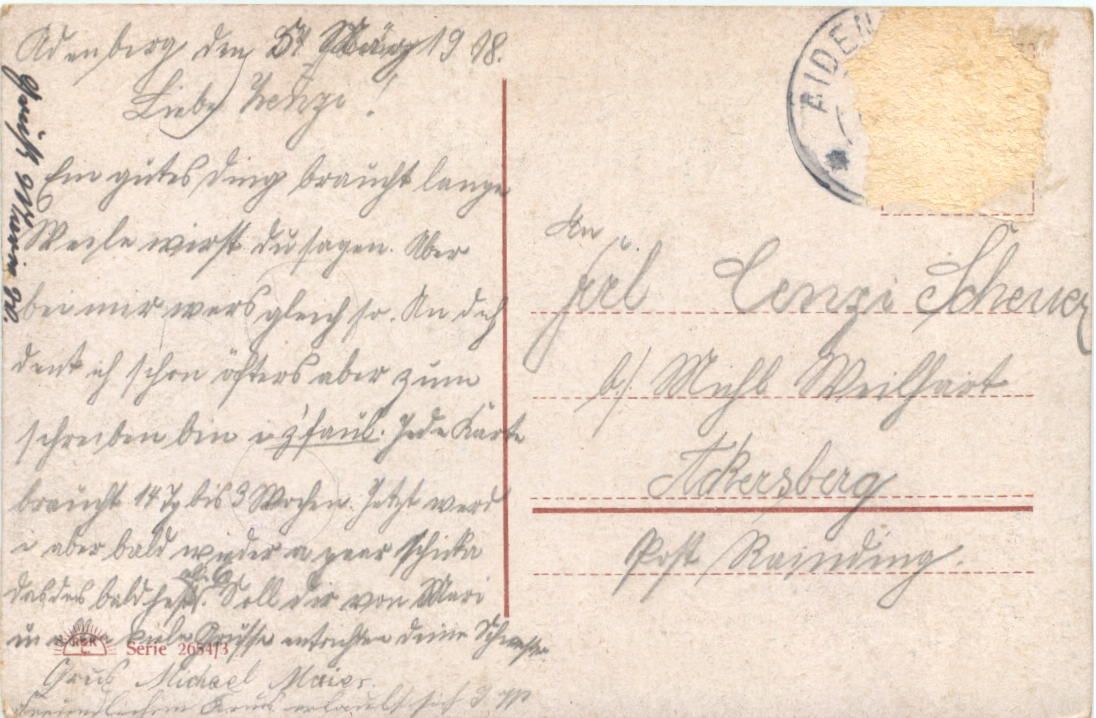 Adenberg den 5. März 1918.
Liebe Zenzi!
Ein gutes Ding braucht lange
Weile wirst du sagen. Aber
bei mir wers gleich so. An dich
denk ich schon öfters aber zum
schreiben bin i z'faul. Jede Karte
braucht 14 Tg bis 3 Wochen. Jetzt werd
i aber bald wieder a paar schicka
das des bald
Soll dir von Mari
viele Grüsse entrichten deine Schwester
Grus Michael Maier.
Freundlichen Grus erlaubt sich
AIDEN
An
Frl Cenzi Scheuer
b/ Michl Weilhart
Ackersberg
Post Rainding.
Serie 2654/3